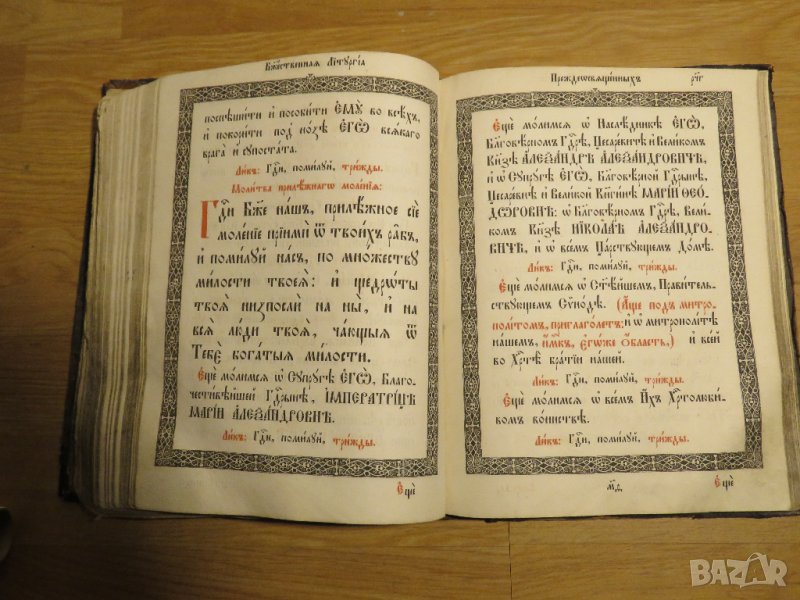 Бж҃ственная Літургіа
поспѣшити и пособити ЕМꙊ во всѣхъ,
и покорити под ноѕѣ ЕГѠ всѧкаго
врага и сꙋпостата.
Ликъ: Гдⷭ҇и, помилꙋй, трижды.
Молитва прилѣжнагѡ моленіѧ:
Гдⷭ҇и Бже нашъ, прилѣжное сіе
моленіе пріими ѿ твоихъ рабъ,
и помилꙋй насъ, по множествꙋ
милости твоеѧ: и щедрѡты
твоѧ низпосли на ны, и на
всѧ люди твоѧ, чающыѧ ѿ
Тебе богатыѧ милости.
Еще молимсѧ ѡ Сꙋпрꙋгѣ ЕГѠ, Благо-
честивѣйшей Гдⷭ҇рынѣ, ІМПЕРАТРІЦѢ
МАРІИ АЛЕѮАНДРОВНѢ.
Ликъ: Гдⷭ҇и, помилꙋй, трижды.
Еще
Преждеосвѧщенныхъ
рчг
Еще молимсѧ ѡ Наслѣдникѣ ЕГѠ,
Благовѣрномъ Гдⷭ҇рѣ, Цесаревичѣ и Великомъ
Кнѧзѣ АЛЕѮАНДРѢ АЛЕѮАНДРОВИЧѢ,
и ѡ Сꙋпрꙋгѣ ЕГѠ, Благовѣрной Гдⷭ҇рынѣ,
Цесаревнѣ и Великой Кнѧгинѣ МАРІИ ѲЕО-
ДѠРОВНѢ: ѡ Благовѣрномъ Гдⷭ҇рѣ, Вели-
комъ Кнѧзѣ НІКОЛАѢ АЛЕѮАНДРО-
ВИЧѢ, и ѡ всемъ Царствꙋющемъ Домѣ.
Ликъ: Гдⷭ҇и, помилꙋй, трижды.
Еще молимсѧ ѡ Свⷮѣйшемъ, Правитель-
ствꙋющемъ Сѵнодѣ. (Аще подъ митро-
політомъ, приглаголетъ: и ѡ митрополітѣ
нашемъ, имⷬ҇къ, егѡже область,) и всей
во Хрⷭ҇тѣ братіи нашей.
Ликъ: Гдⷭ҇и, помилꙋй, трижды.
Еще молимсѧ ѡ всемъ Ихъ Хрⷭ҇толюби-
вомъ воинствѣ.
Ликъ: Гдⷭ҇и, помилꙋй, трижды.
Еще
BAZAR